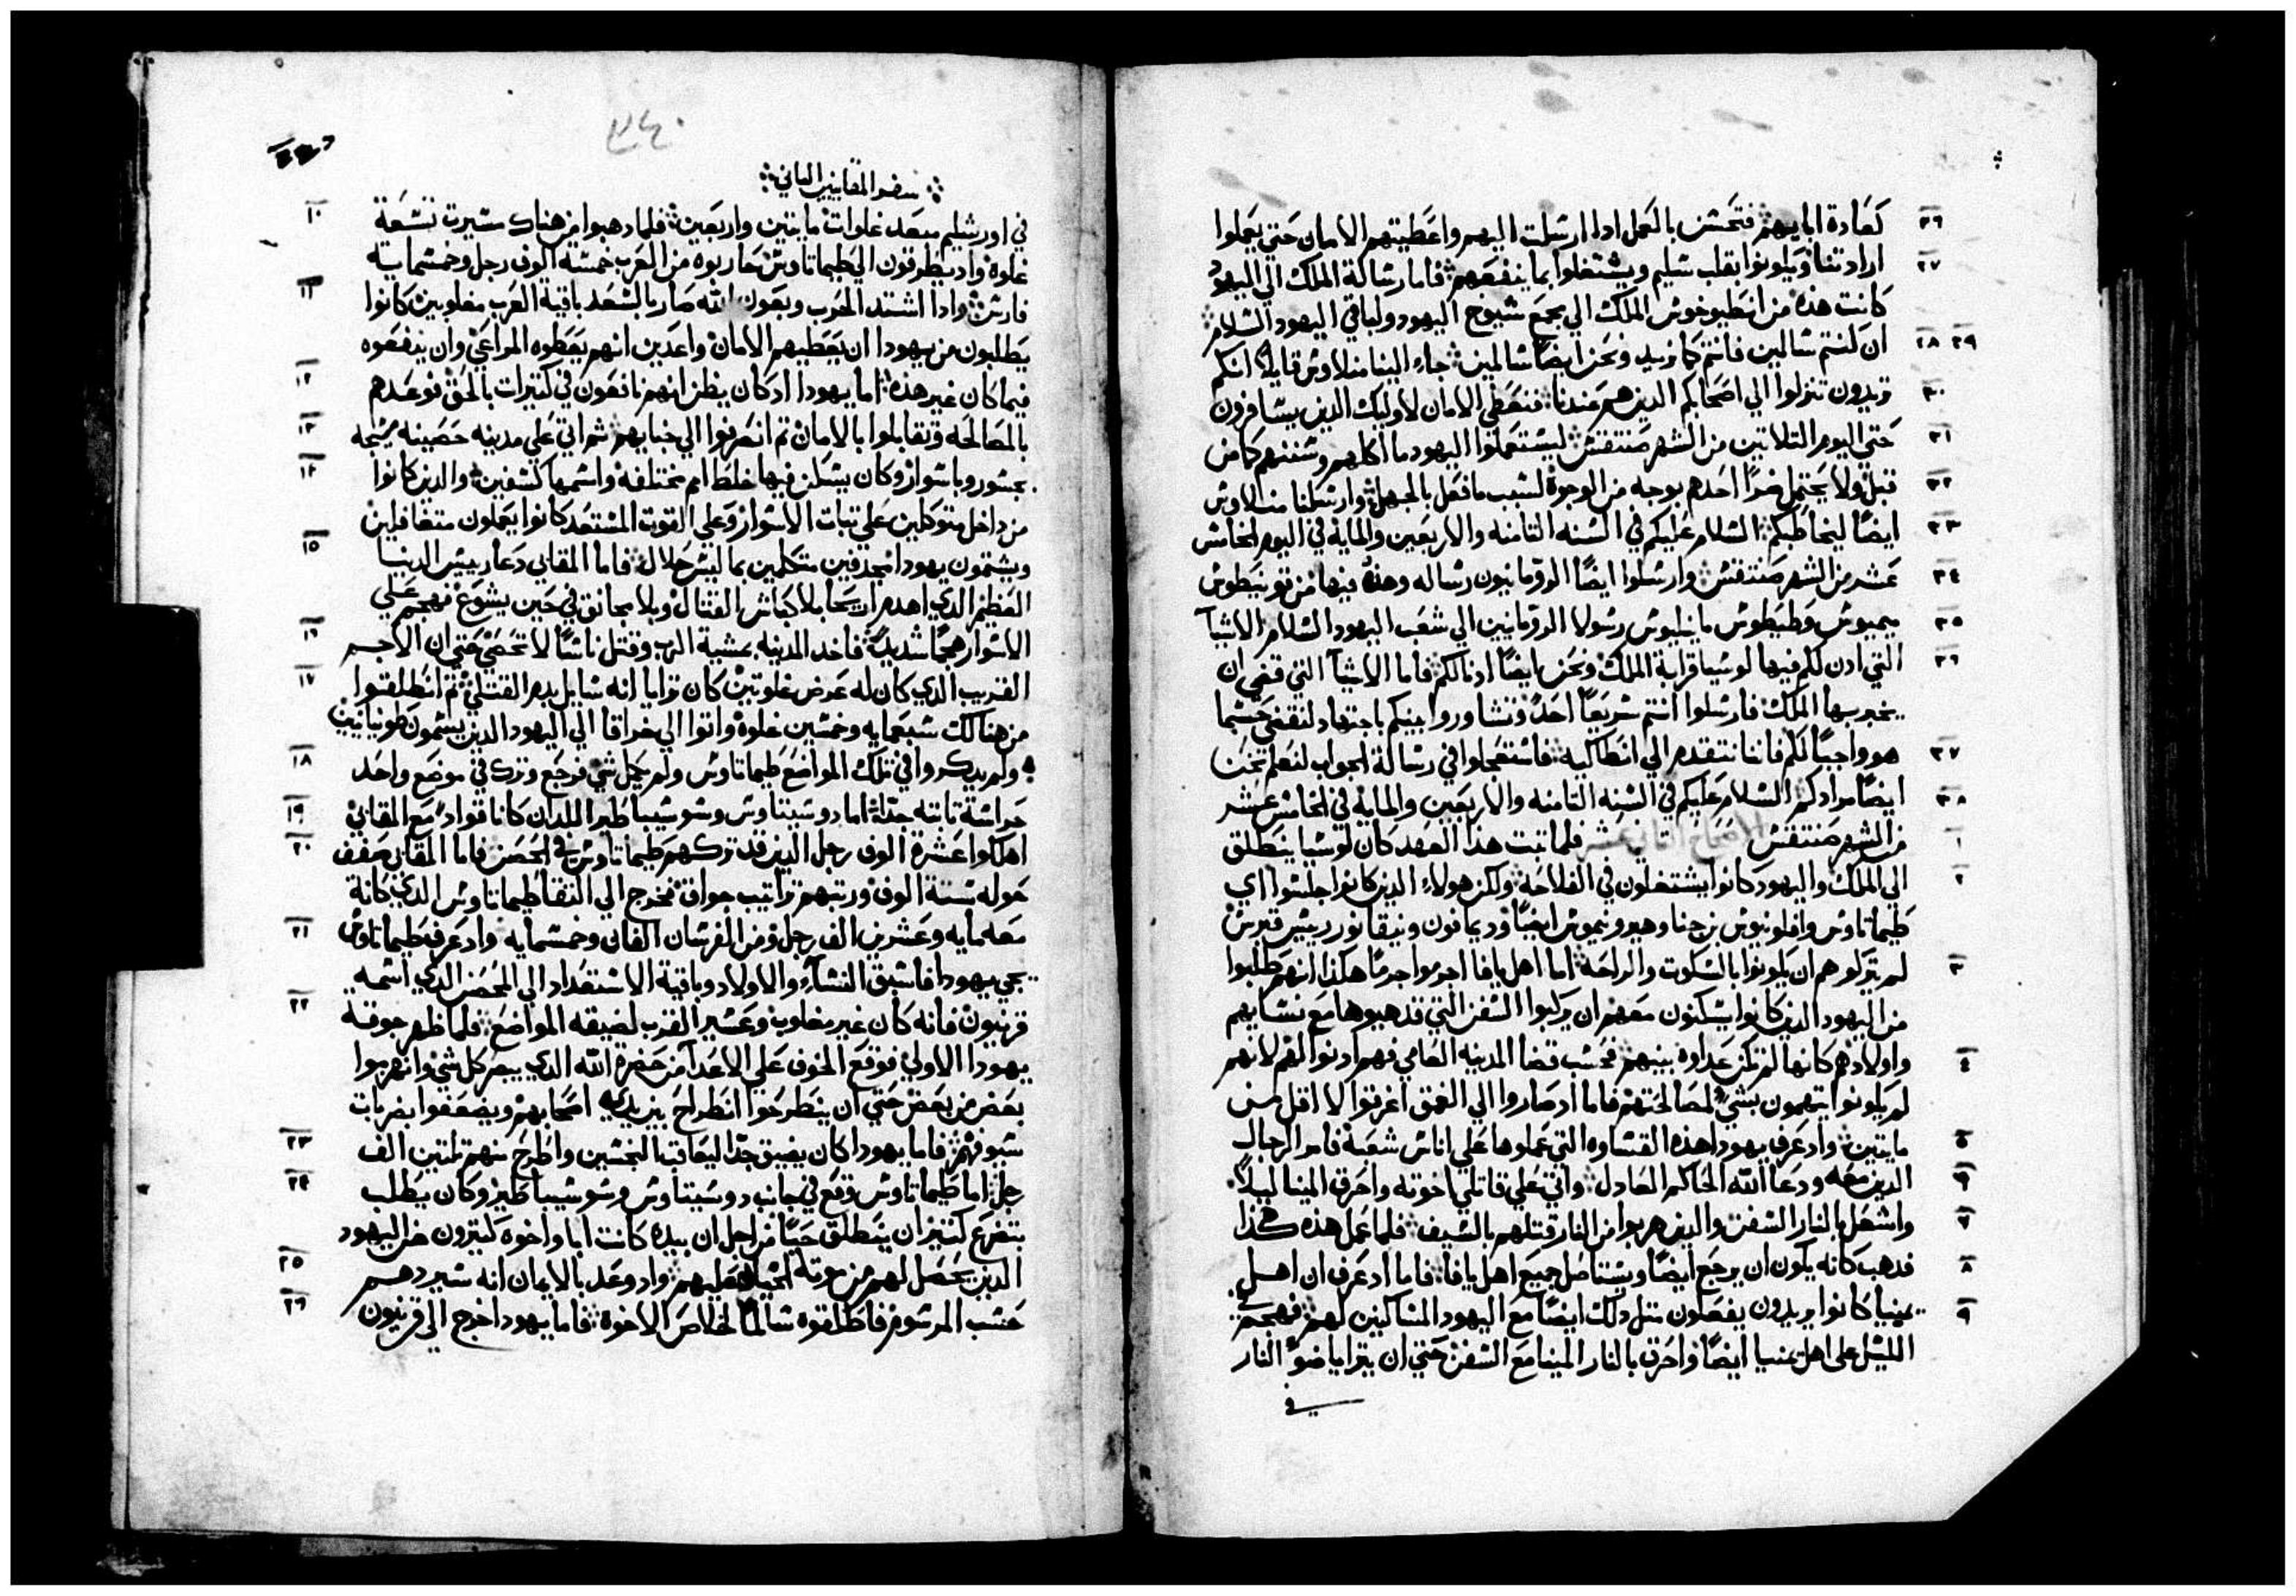 كعادة ابايهم فتحسن بالعمل اذا ارسلت اليهم واعطيتهم الامان حتي يعملوا
٢٦
ارادتنا ويكونوا بقلب سليم ويشتغلوا بما ينفعهم فاما رسالة الملك الي اليهود
٢٧
كانت هذه من انطيوخوس الملك الي مجمع شيوخ اليهود ولباقي اليهود السلام
ان كنتم سالمين فانتم كما نريد ونحن ايضًا سالمين جاء الينا منلاوس قايلًا انكم
٢٨ ٢٩
تريدون تنزلوا الي اصحابكم الذين هم عندنا فنعطي الامان لاوليك الذين يسافرون
٣٠
حتي اليوم الثلاثين من الشهر صنتقس ليستعملوا اليهود ما اكلهم وسننهم كما من
٣١
قبل ولا يحتمل ضرًا احدهم بوجه من الوجوه لسبب ما فعل بالجهل وارسلنا منلاوس
٣٢
ايضًا ليخاطبكم السلام عليكم في السنه الثامنه والاربعين والمايه في اليوم الخامس
٣٣
عشر من الشهر صنتقس وارسلوا ايضًا الرومانيون رساله وهذه فيها من قوينطوس
٣٤
ميميوس وطيطوس مانيليوس رسولا الرومانيين الي شعب اليهود السلام الاشيآ
٣٥
التي اذن لكم فيها لوسيا قرابة الملك ونحن ايضًا اذنا لكم فاما الاشيآ التي قضي ان
٣٦
يخبر بها الملك فارسلوا انتم سريعًا احدًا وتشاوروا بينكم باجتهاد لنقضي حسبما
هو واجبًا لكم فاننا نتقدم الي انطاكيه فاستعجلوا في رسالة الجواب لنعلم نحن
٣٧
ايضًا مرادكم السلام عليكم في السنه الثامنه والاربعين والمايه في الخامس عشر
٣٨
من الشهر صنتقس الاصحاح الثاني عشر فلما تبت هذا العهد كان لوسيا ينطلق
١
الي الملك واليهود كانوا يشتغلون في الفلاحه ولكن هولاء الذين كانوا جلسوا اي
٢
طيماتاوس وافلونيوس بن جناوهيرونيموس ايضًا وديمافون ونيقانور رييس قبرس
لم يتركوهم ان يكونوا بالسكوت والراحه اما اهل يافا اجرموا جرمًا هكذا انهم طلبوا
٣
من اليهود الذين كانوا يسكنون معهم ان يركبوا السفن التي قد هيوها مع نسايهم
واولادهم كانها لم تكن عداوه بينهم فحسب قضا المدينه العامي فهم اذنوا لهم لانهم
٤
لم يكونوا يتهمون بشي لمصالحتهم فاما اذ صاروا الي العمق اغرقوا لا اقل من
مايتين واذ عرف يهودا هذه القساوه التي عملوها علي اناس شعبه فامر الرجال
٥
الذين معه ودعا الله الحاكم العادل واتي علي قاتلي اخوته واحرق المينا ليلًا
٦
واشعل بالنار السفن والذين هربوا من النار قتلهم بالسيف فلما عمل هذه هكذا
٧
فدهب كانه يكون ان يرجع ايضًا ويستاصل جميع اهل يافا فاما اذ عرف ان اهل
٨
يمنيا كانوا يريدون يفعلون متل ذلك ايضًا مع اليهود الساكنين لهم فهجم في
٩
الليل علي اهل يمنيا ايضًا واحرق بالنار المينا مع السفن حتي ان يترايا ضوء النار
في
٣٤٠
سفر المقابيين الثاني
في اورشليم مبعد غلوات مايتين واربعين فلما دهبوا من هناك مسيرت تسعة
١٠
غلوة واذ يطرقون الي طيماتاوس حاربوه من العرب خمسه الوف رجل وخمسمايه
فارس واذا اشتد الحرب وبعون الله صار بالسعد باقية العرب مغلوبين كانوا
١١
يطلبون من يهودا ان يعطيهم الامان واعدين انهم يعطوه المراعي وان ينفعوه
فيما كان غير هذه اما يهودا اذ كان يظن انهم نافعون في كثيرات بالحق فوعدهم
١٢
بالمصالحه وتقابلوا بالامان تم انصرفوا الي خبايهم ثم اتي علي مدينه حصينه مسيجه
١٣
بجسور وباسوار وكان يسكن فيها خلط امم مختلفه واسمها كسفين والذين كانوا
١٤
من داخل متوكلين علي تبات الاسوار وعلي القوت المستعد كانوا يعملون متغافلين
ويشتمون يهودا مجدفين متكلمين بما ليس حلال فاما المقابي دعا رييس الدنيا
١٥
العظيم الذي اهدم اريحا بلا كباش القتال وبلا مجانق في حين يشوع فهجم علي
الاسوار هجمًا شديدًا فاخد المدينه بمشية الرب وقتل ناسًا لا تحصي حتي ان الاجم
١٦
القريب الذي كان له عرض غلوتين كان ترايا انه سايل بدم القتلي ثم انطلقوا
١٧
من هنالك سبعمايه وخمسين غلوة واتوا الي خراقا الي اليهود الذين يسمون طونيانيين
ولم يدركوا في تلك المواضع طيماتاوس ولم يكمل شي فرجع وترك في موضع واحد
١٨
حراسة تابته جدًا اما دوسيتاوس وسوسيباطير اللدان كانا قوادً مع المقابي
١٩
اهلكوا عشرة الوف رجل الذين قد تركهم طيماتاوس في الحصن فاما المقابي صفف
٢٠
حوله ستة الوف ورتبهم تراتيب جواق فخرج الي التقا طيماتاوس الذي كانة
معه مايه وعشرين الف رجل ومن الفرسان الفاني وخمسمايه واذ عرف طيماتاوس
٢١
بمجي يهودا فاسبق النساء والاولاد وباقية الاستعداد الي الحصن الذي اسمه
قرنيون فانه كان غير مغلوب وعسير القرب لضيقه المواضع فلما ظهر جوقة
٢٢
يهودا الاولي فوقع الخوف علي الاعدآ من حضرة الله الذي يبصر كل شي وانهزموا
بعض من بعض حتي ان ينطرحوا انطراح بين يدي اصحابهم ويصعقوا بضربات
سيوفهم فاما يهودا كان يضيق جدًا ليعاقب النجسين واطرح منهم تلتين الف
٢٣
رجل اما طيماتاوس وقع في جانب دوسيتاوس وسوسيباطير وكان يطلب
٢٤
بتضرع كثير ان ينطلق حيًا من اجل ان بيده كانت ابا واخوه كثيرون من اليهود
الذين يحصل لهم من موته واذ وعد بالايمان انه سيردهم
٢٥
حسب المرسوم فاطلقوه سالمًا لخلاص الاخوه فاما يهودا خرج الي قرنيون
٢٦